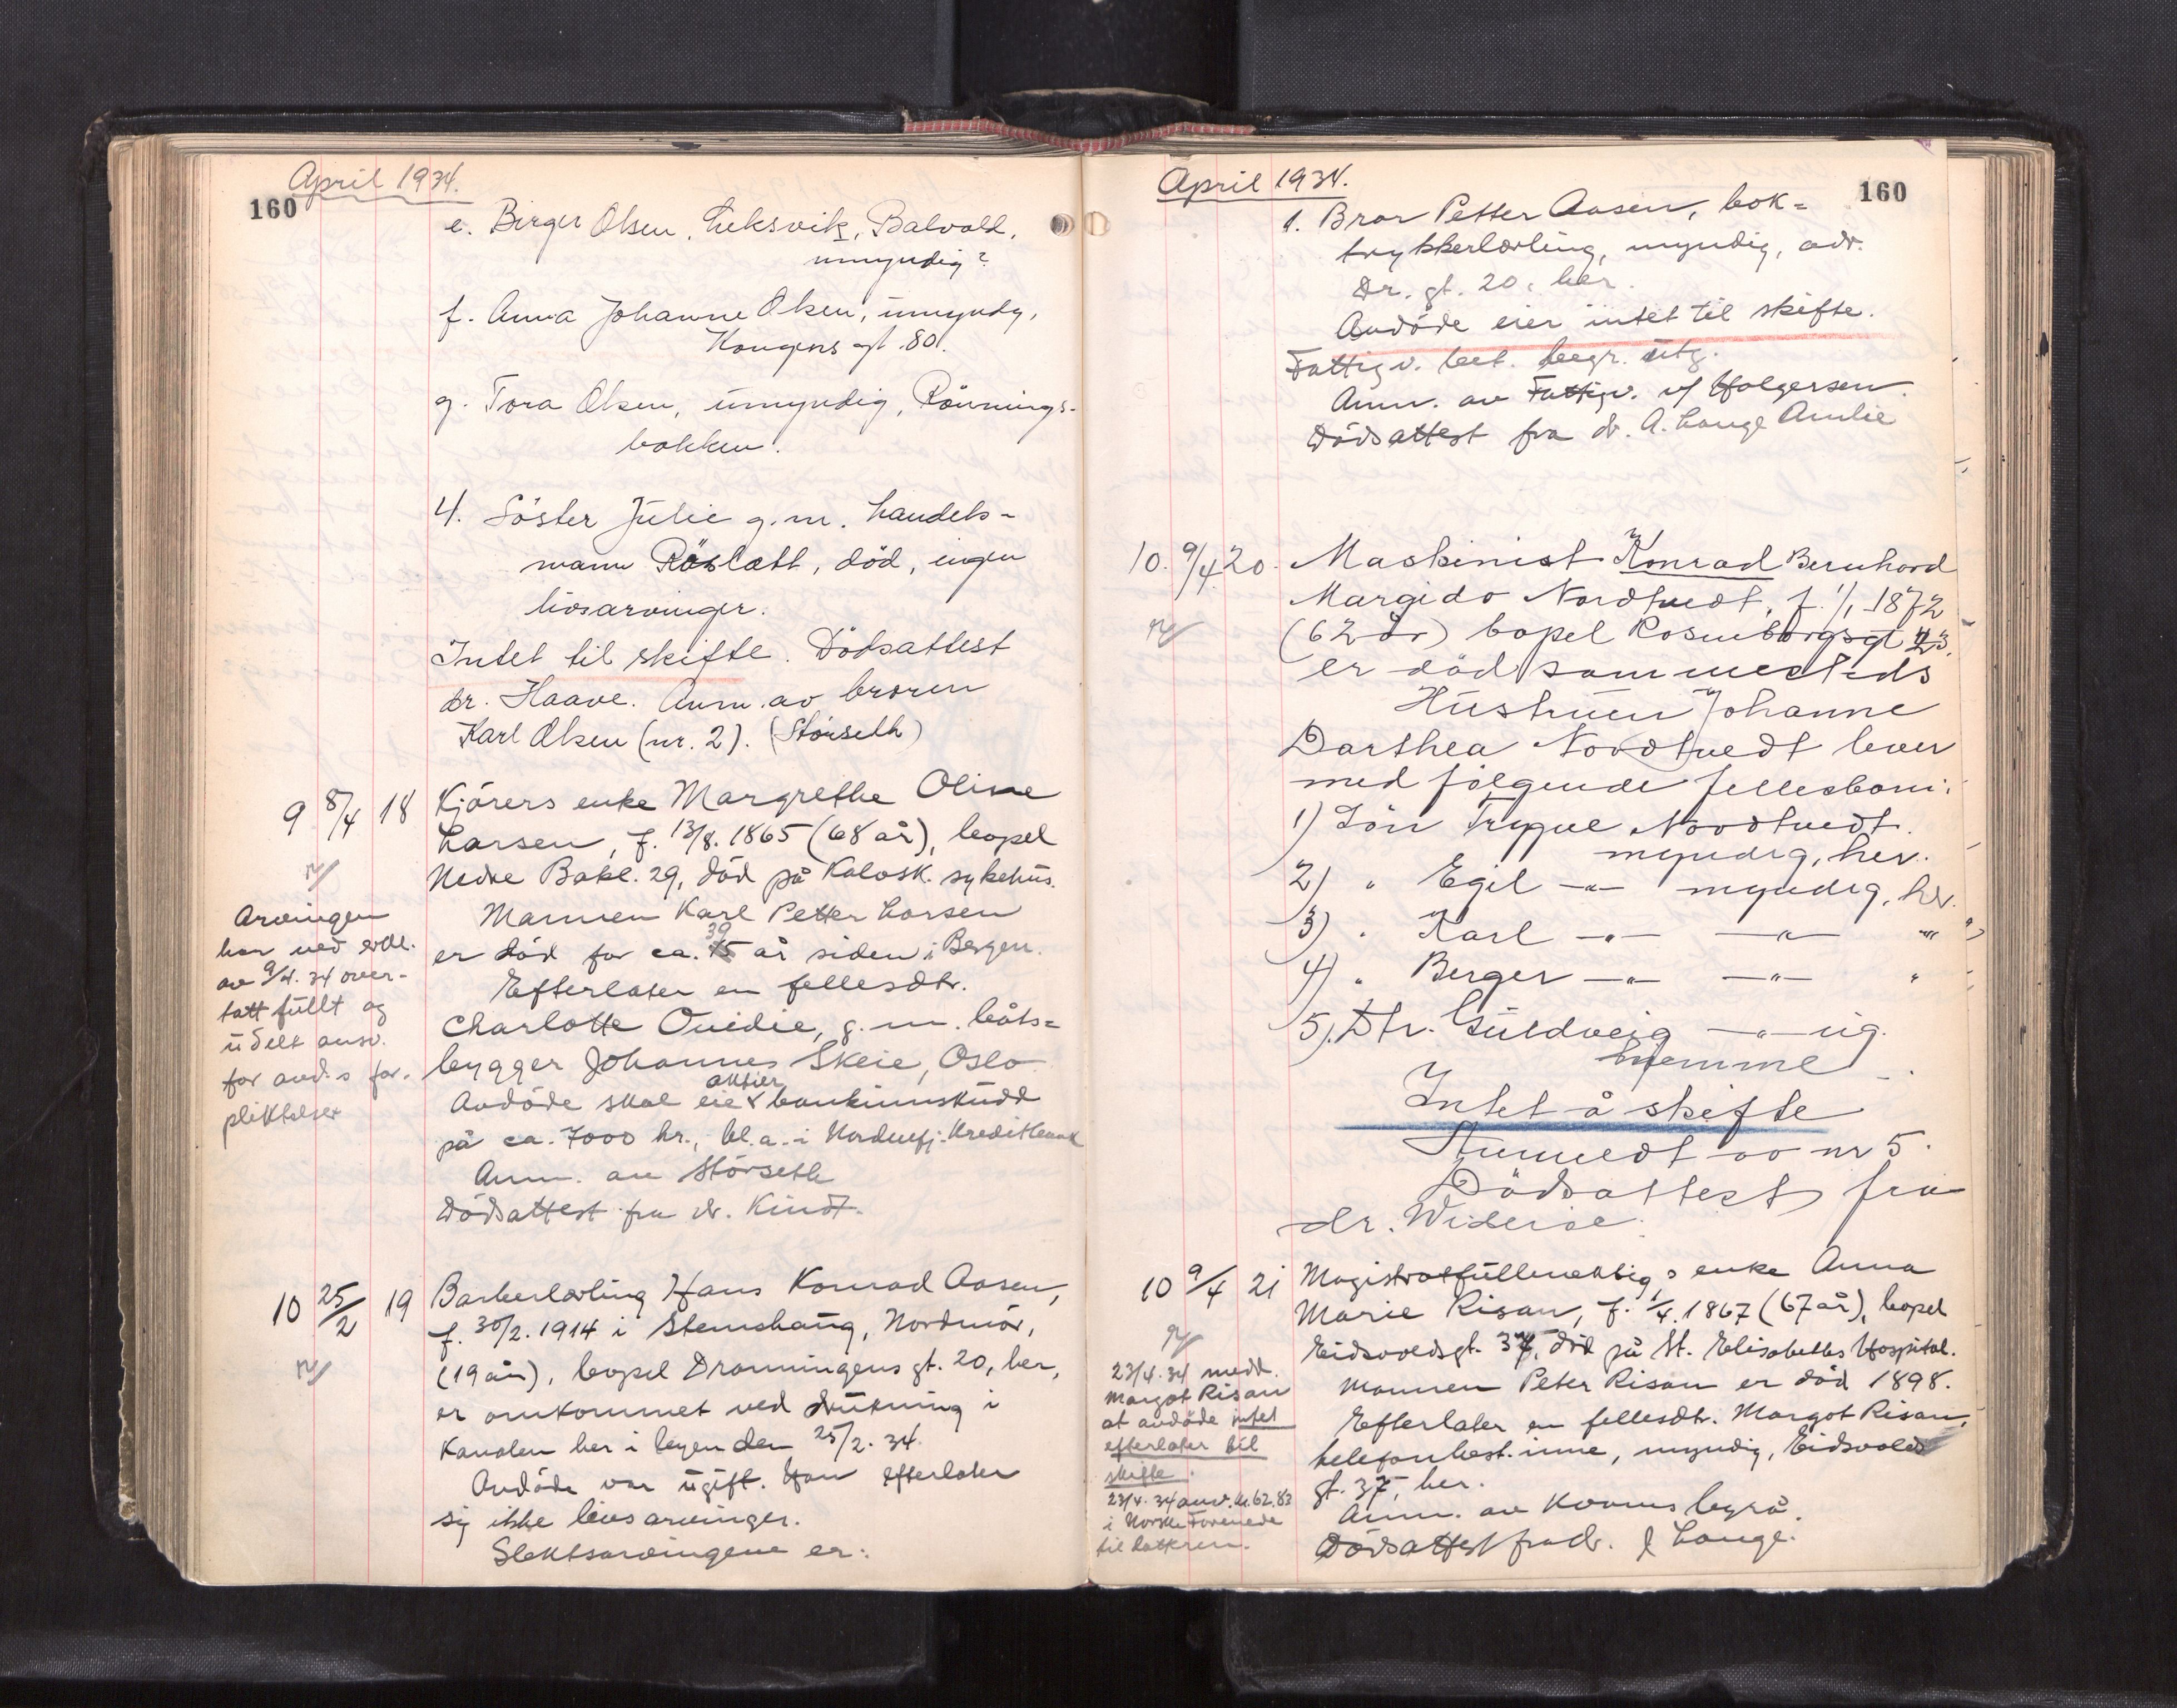 April 1934.
160
e. Birger Olsen, Leksvik, Balvold,
umyndig?
f. Anna Johanne Olsen, umyndg,
Kongens gt. 80.
g. Tora Olsen, umyndig, Rönnings-
bakken.
4. Söster Julie g.m. handels-
mann Röslett, död, ingen
livsarvinger.
Intet til skifte. Dödsattest
dr. Haave. Anm. av broren
Karl Olsen (nr. 2). (Störseth)
9 8/4 18 Kjörers enke Margrethe Oline
Larsen, f. 13/8. 1865 (68 år), bopel
Nedre Bakl. 29, död på Kalvsk. sykehus.
Mannen Karl Petter Larsen
er död for ca. 39 år siden i Bergen.
Efterlater en fellesdtr.
Charlotte Ovidie, g.m. båts=
bygger Johannes Skeie, Oslo
Avdöde skal eie aktier & bankinnskudd
på ca. 7000 kr., bl.a. i Nordenfj. Kreditbank
Anm. av Störseth
Dödsattest fra dr. Kindt.
Arvingen
har ved erkl.
av 9/4. 34 over-
tatt fullt og
udelt ansv.
for avd.s for-
pliktelser
10 25/2 19 Barberlærling Hans Konrad Aasen,
f. 30/2. 1914 i Stemshaug, Nordmör,
(19 år), bopel Dronningens gt. 20, her,
er omkommet ved drukning i
Kanalen her i byen den 25/2. 34.
Avdöde var ugift. Han efterlater
sig ikke livsarvinger.
Slektsarvingene er:
April 1934.
160
1. Bror Petter Aasen, bok=
trykkerlærling, myndig, adr.
Dr. gt. 20, her.
Avdöde eier intet til skifte.
Fattigv. bet. begr. utg.
Anm. av Fattigv. v/ Holgersen.
Dödsattest fra dr. A. Lange Amlie
10. 9/4 20. Maskinist Konrad Bernhard
Margido Nordtvedt, f. 1/1 1872
(62 år) bopel Rosenborgsgt 23.
er död sammesteds
Hustruen Johanne
Darthea Nordtvedt lever
med fölgende fellesbarn:
1) Sön Trygve Nordtvedt.
myndig, her.
2) " Egil -"- myndig, her.
3) " Karl -"- -"- "
4) " Berger -"- -"- "
5). Dtr. Guldveig -"- ug.
hjemme
Intet å skifte
Anmeldt av nr 5.
Dödsattest fra
dr. Wideröe.
10 9/4 21 Magistratfullmektigs enke Anna
Marie Risan, f. 1/4. 1867 (67 år), bopel
Eidsvoldsgt. 37, död på St. Elisabeths Hospital.
Mannen Peter Risan er död 1898.
Efterlater en fellesdtr. Margot Risan,
telefonbest.inne, myndig, Eidsvolds
gt. 37, her.
Anm. av Kvams byrå.
Dödsattest fra dr. J Lange.
23/4. 34 medd.
Margot Risan
at avdöde intet
efterlater til
skifte.
23/4. 34 anv. kr. 62.83
i Norske Forenede
til datteren.